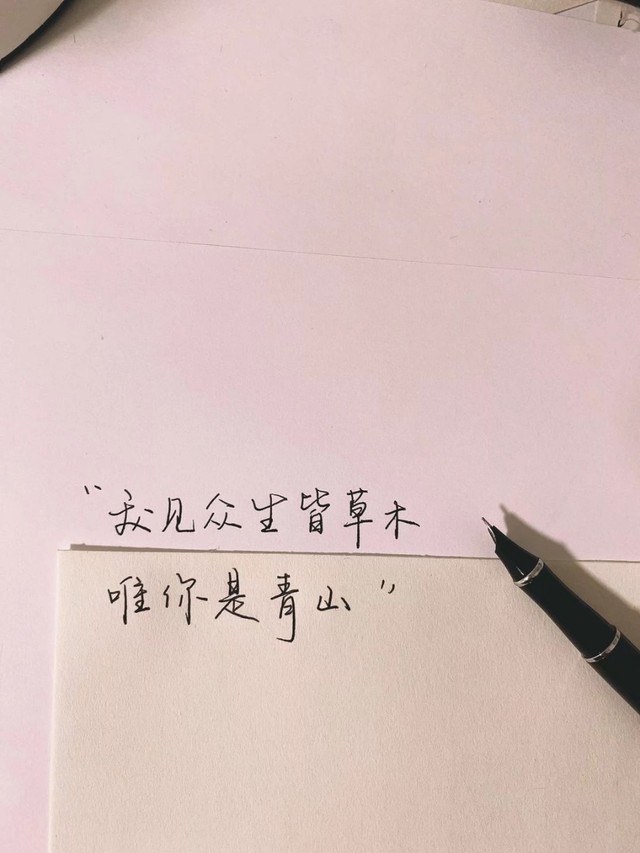 “我见众生皆草木
唯你是青山”